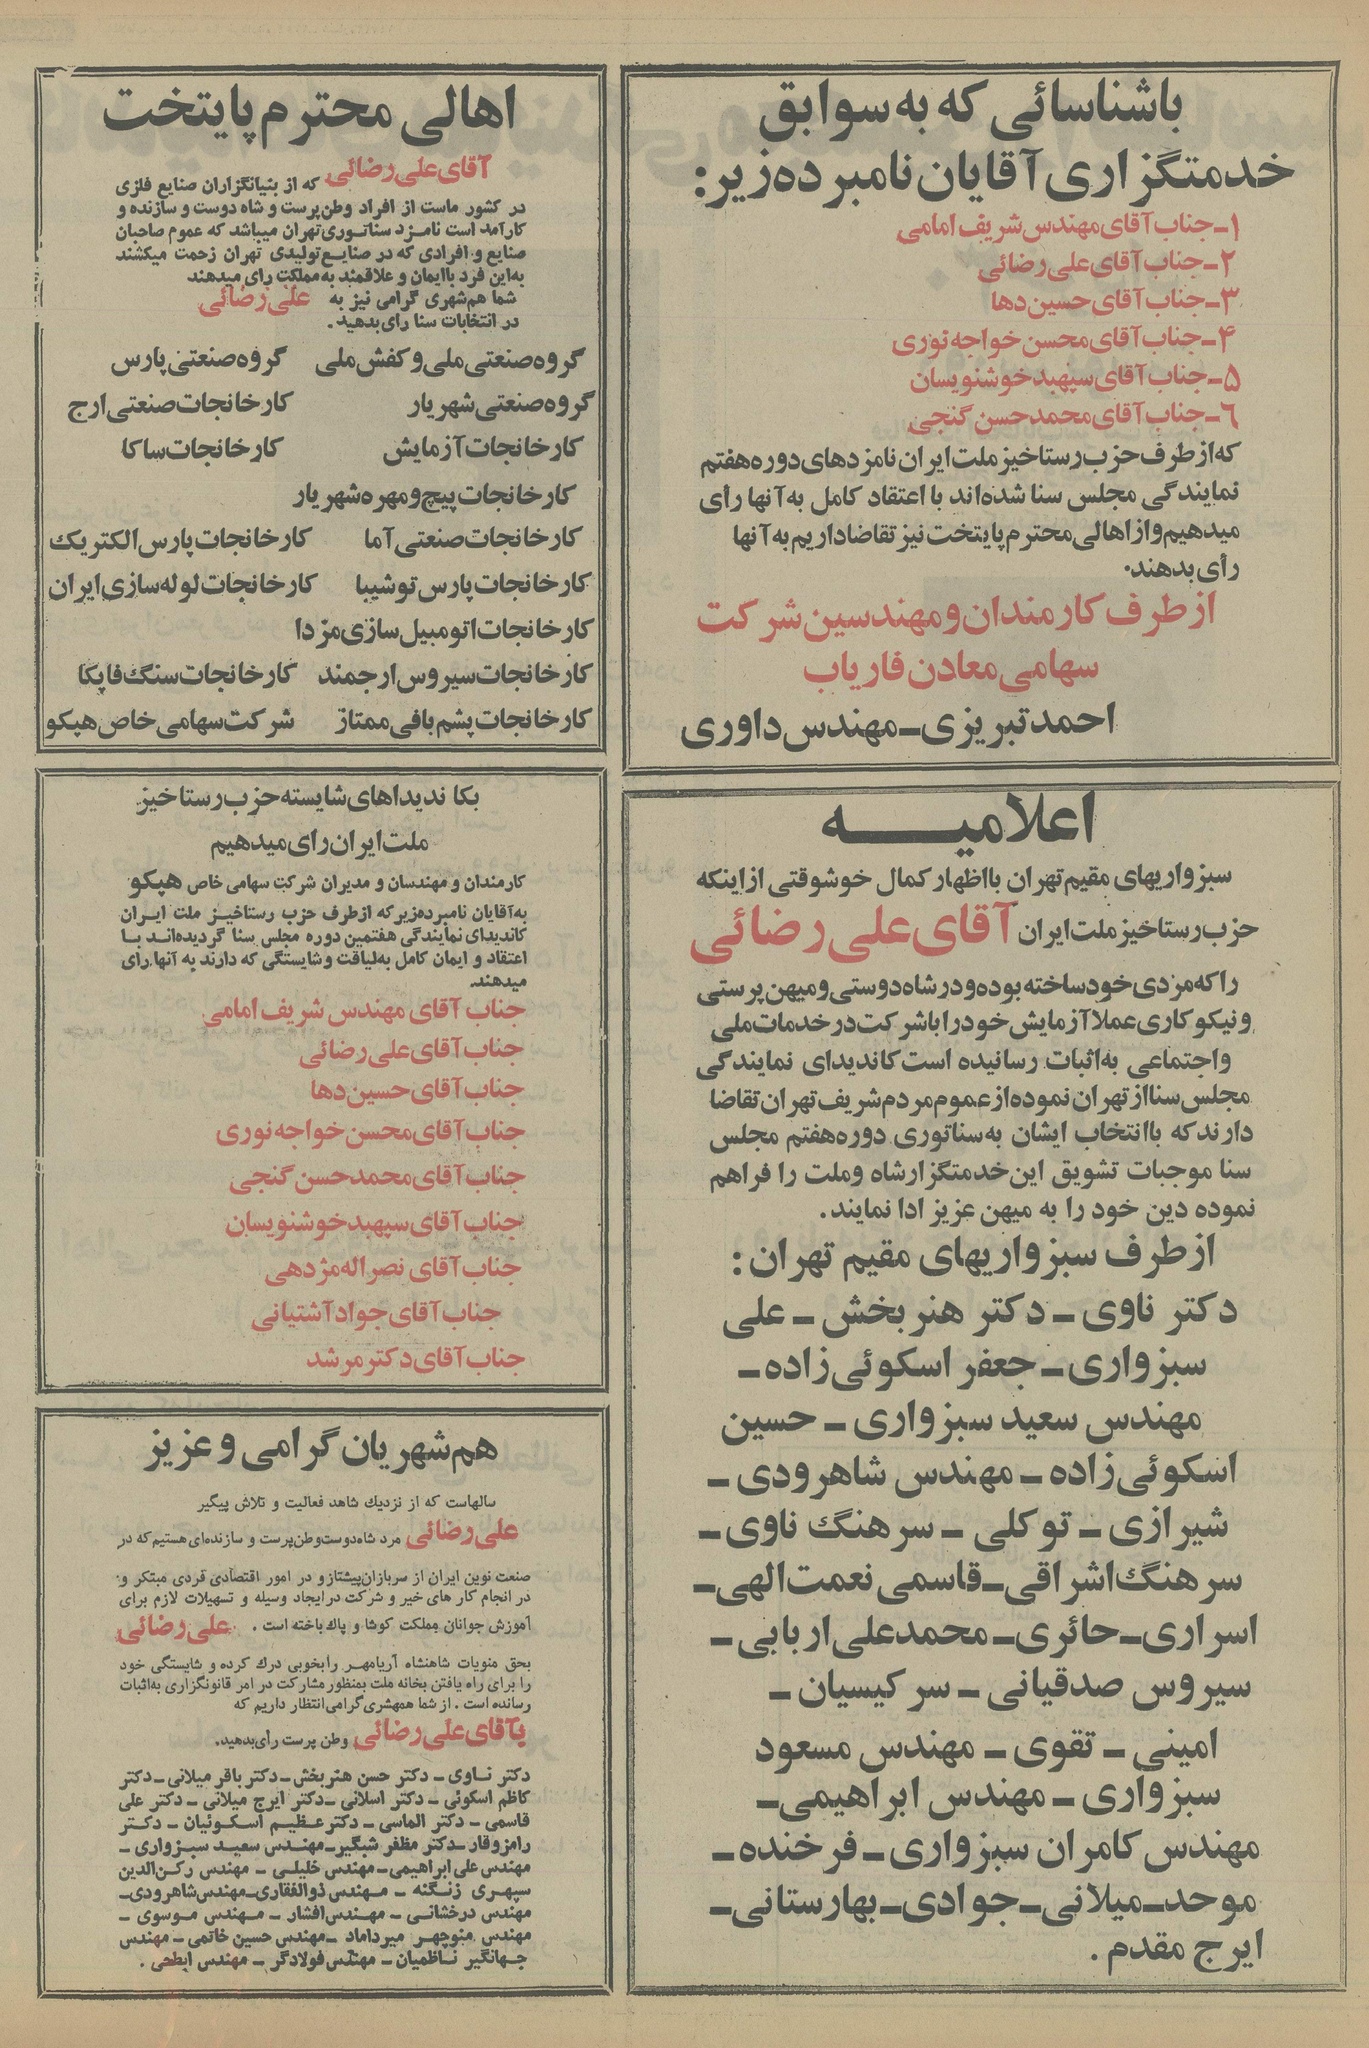 باشناسائی که به سوابق
خدمتگزاری آقایان نامبرده زیر:
۱ـ جناب آقای مهندس شریف امامی
۲ـ جناب آقای علی رضائی
۳ـ جناب آقای حسین دها
۴ـ جناب آقای محسن خواجه نوری
۵ـ جناب آقای سپهبد خوشنویسان
۶ـ جناب آقای محمدحسن گنجی
که از طرف حزب رستاخیز ملت ایران نامزدهای دوره هفتم
نمایندگی مجلس سنا شده‌اند با اعتقاد کامل به آنها رأی
میدهیم و از اهالی محترم پایتخت نیز تقاضا داریم به آنها
رأی بدهند.
از طرف کارمندان و مهندسین شرکت
سهامی معادن فاریاب
احمد تبریزی ـ مهندس داوری
اعلامیــــه
سبزواریهای مقیم تهران با اظهار کمال خوشوقتی از اینکه
حزب رستاخیز ملت ایران آقای علی رضائی
را که مردی خودساخته بوده و در شاه دوستی و میهن پرستی
و نیکوکاری عملا آزمایش خود را با شرکت در خدمات ملی
و اجتماعی به اثبات رسانیده است کاندیدای نمایندگی
مجلس سنا از تهران نموده از عموم مردم شریف تهران تقاضا
دارند که با انتخاب ایشان به سناتوری دوره هفتم مجلس
سنا موجبات تشویق این خدمتگزار شاه و ملت را فراهم
نموده دین خود را به میهن عزیز ادا نمایند.
از طرف سبزواریهای مقیم تهران:
دکتر ناوی ـ دکتر هنربخش ـ علی
سبزواری ـ جعفر اسکوئی زاده ـ
مهندس سعید سبزواری ـ حسین
اسکوئی زاده ـ مهندس شاهرودی ـ
شیرازی ـ توکلی ـ سرهنگ ناوی ـ
سرهنگ اشراقی ـ قاسمی نعمت الهی ـ
اسراری ـ حائری ـ محمدعلی اربابی ـ
سیروس صدقیانی ـ سرکیسیان ـ
امینی ـ تقوی ـ مهندس مسعود
سبزواری ـ مهندس ابراهیمی ـ
مهندس کامران سبزواری ـ فرخنده ـ
موحد ـ میلانی ـ جوادی ـ بهارستانی ـ
ایرج مقدم.
اهالی محترم پایتخت
آقای علی رضائی که از بنیانگزاران صنایع فلزی
در کشور ماست از افراد وطن‌پرست و شاه دوست و سازنده و
کارآمد است نامزد سناتوری تهران میباشد که عموم صاحبان
صنایع و افرادی که در صنایع تولیدی تهران زحمت میکشند
به این فرد باایمان و علاقمند به مملکت رای میدهند
شما هم‌شهری گرامی نیز به علی رضائی
در انتخابات سنا رای بدهید.
گروه صنعتی ملی و کفش ملی گروه صنعتی پارس
گروه صنعتی شهریار کارخانجات صنعتی ارج
کارخانجات آزمایش کارخانجات ساکا
کارخانجات پیچ و مهره شهریار
کارخانجات صنعتی آما کارخانجات پارس الکتریک
کارخانجات پارس توشیبا کارخانجات لوله‌سازی ایران
کارخانجات اتومبیل سازی مزدا
کارخانجات سیروس ارجمند کارخانجات سنگ فاپکا
کارخانجات پشم بافی ممتاز شرکت سهامی خاص هپکو
بکاندیداهای شایسته حزب رستاخیز
ملت ایران رای میدهیم
کارمندان و مهندسان و مدیران شرکت سهامی خاص هپکو
به آقایان نامبرده زیر که از طرف حزب رستاخیز ملت ایران
کاندیدای نمایندگی هفتمین دوره مجلس سنا گردیده‌اند با
اعتقاد و ایمان کامل به لیاقت و شایستگی که دارند به آنها رای
میدهند
جناب آقای مهندس شریف امامی
جناب آقای علی رضائی
جناب آقای حسین دها
جناب آقای محسن خواجه نوری
جناب آقای محمدحسن گنجی
جناب آقای سپهبد خوشنویسان
جناب آقای نصراله مژدهی
جناب آقای جواد آشتیانی
جناب آقای دکتر مرشد
هم‌شهریان گرامی و عزیز
سالهاست که از نزدیك شاهد فعالیت و تلاش پیگیر
علی رضائی مرد شاه‌دوست وطن‌پرست و سازنده‌ای هستیم که در
صنعت نوین ایران از سربازان پیشتاز و در امور اقتصادی فردی مبتکر و
در انجام کارهای خیر و شرکت در ایجاد وسیله و تسهیلات لازم برای
آموزش جوانان مملکت کوشا و پاك باخته است. علی رضائی
بحق منویات شاهنشاه آریامهر را بخوبی درك کرده و شایستگی خود
را برای راه یافتن بخانه ملت بمنظور مشارکت در امر قانونگزاری به اثبات
رسانده است. از شما همشهری گرامی انتظار داریم که
بآقای علی رضائی وطن پرست رأی بدهید.
دکتر ناوی ـ دکتر حسن هنربخش ـ دکتر باقر میلانی ـ دکتر
کاظم اسکوئی ـ دکتر اسلانی ـ دکتر ایرج میلانی ـ دکتر علی
قاسمی ـ دکتر الماسی ـ دکتر عظیم اسکوئیان ـ دکتر
رامز وقار ـ دکتر مظفر شبگیر ـ مهندس سعید سبزواری ـ
مهندس علی ابراهیمی ـ مهندس خلیلی ـ مهندس رکن‌الدین
سپهری زنگنه ـ مهندس ذوالفقاری ـ مهندس شاهرودی ـ
مهندس درخشانی ـ مهندس افشار ـ مهندس موسوی ـ
مهندس منوچهر میرداماد ـ مهندس حسین خاتمی ـ مهندس
جهانگیر ناظمیان ـ مهندس فولادگر ـ مهندس ابطحی.